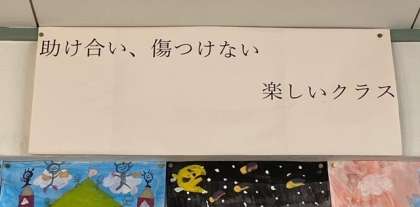 助け合い、傷つけない
楽しいクラス